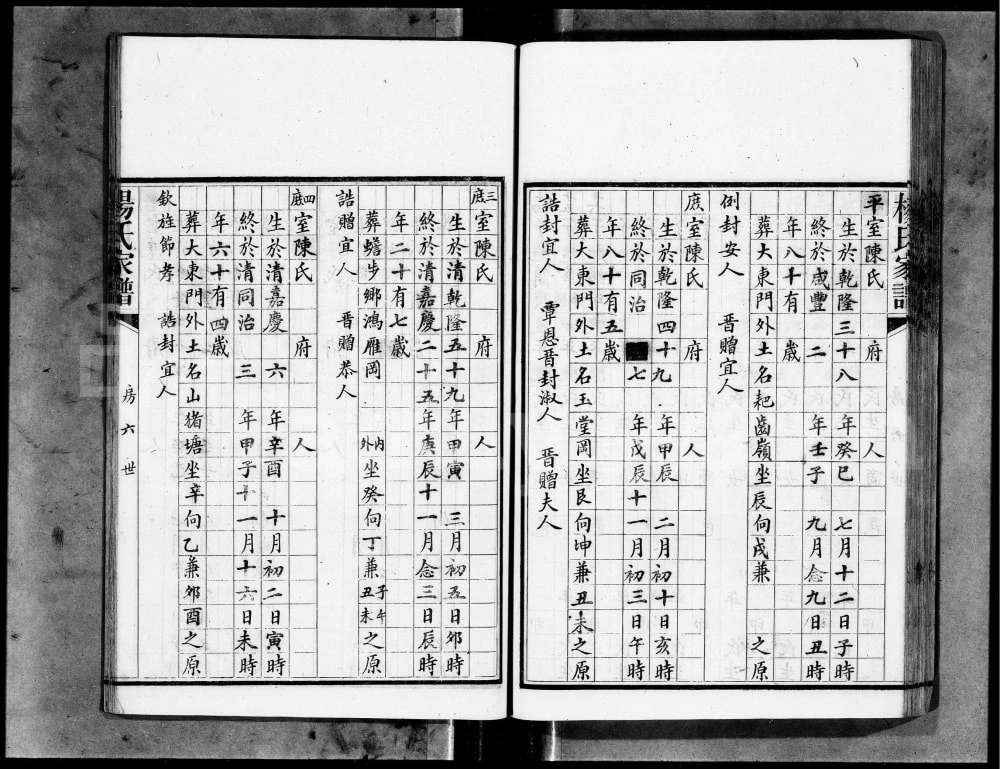 楊氏家譜
平室陳氏 府 人
生於乾隆三十八年癸巳 七月十二日子時
終於咸豐 二 年壬子 九月念九日丑時
年八十有 歲
葬大東門外土名耙齒嶺坐辰向戌兼 之原
例封安人 晉贈宜人
庶室陳氏 府 人
生於乾隆四十九年甲辰 二月初十日亥時
終於同治 七 年戊辰十一月初三日午時
年八十有五歲
葬大東門外土名玉堂岡坐艮向坤兼丑未之原
誥封宜人 覃恩晉封淑人 晉贈夫人
三庶室陳氏 府 人
生於清乾隆五十九年甲寅 三月初五日卯時
終於清嘉慶二十五年庚辰十一月念三日辰時
年二十有七歲
葬蟾步鄉鴻雁岡 內外坐癸向丁兼子午丑未之原
誥贈宜人 晉贈恭人
四庶室陳氏 府 人
生於清嘉慶 六 年辛酉 十月初二日寅時
終於清同治 三 年甲子十一月十六日未時
年六十有四歲
葬大東門外土名山猪塘坐辛向乙兼卯酉之原
欽旌節孝 誥封宜人
楊氏家譜 房六世